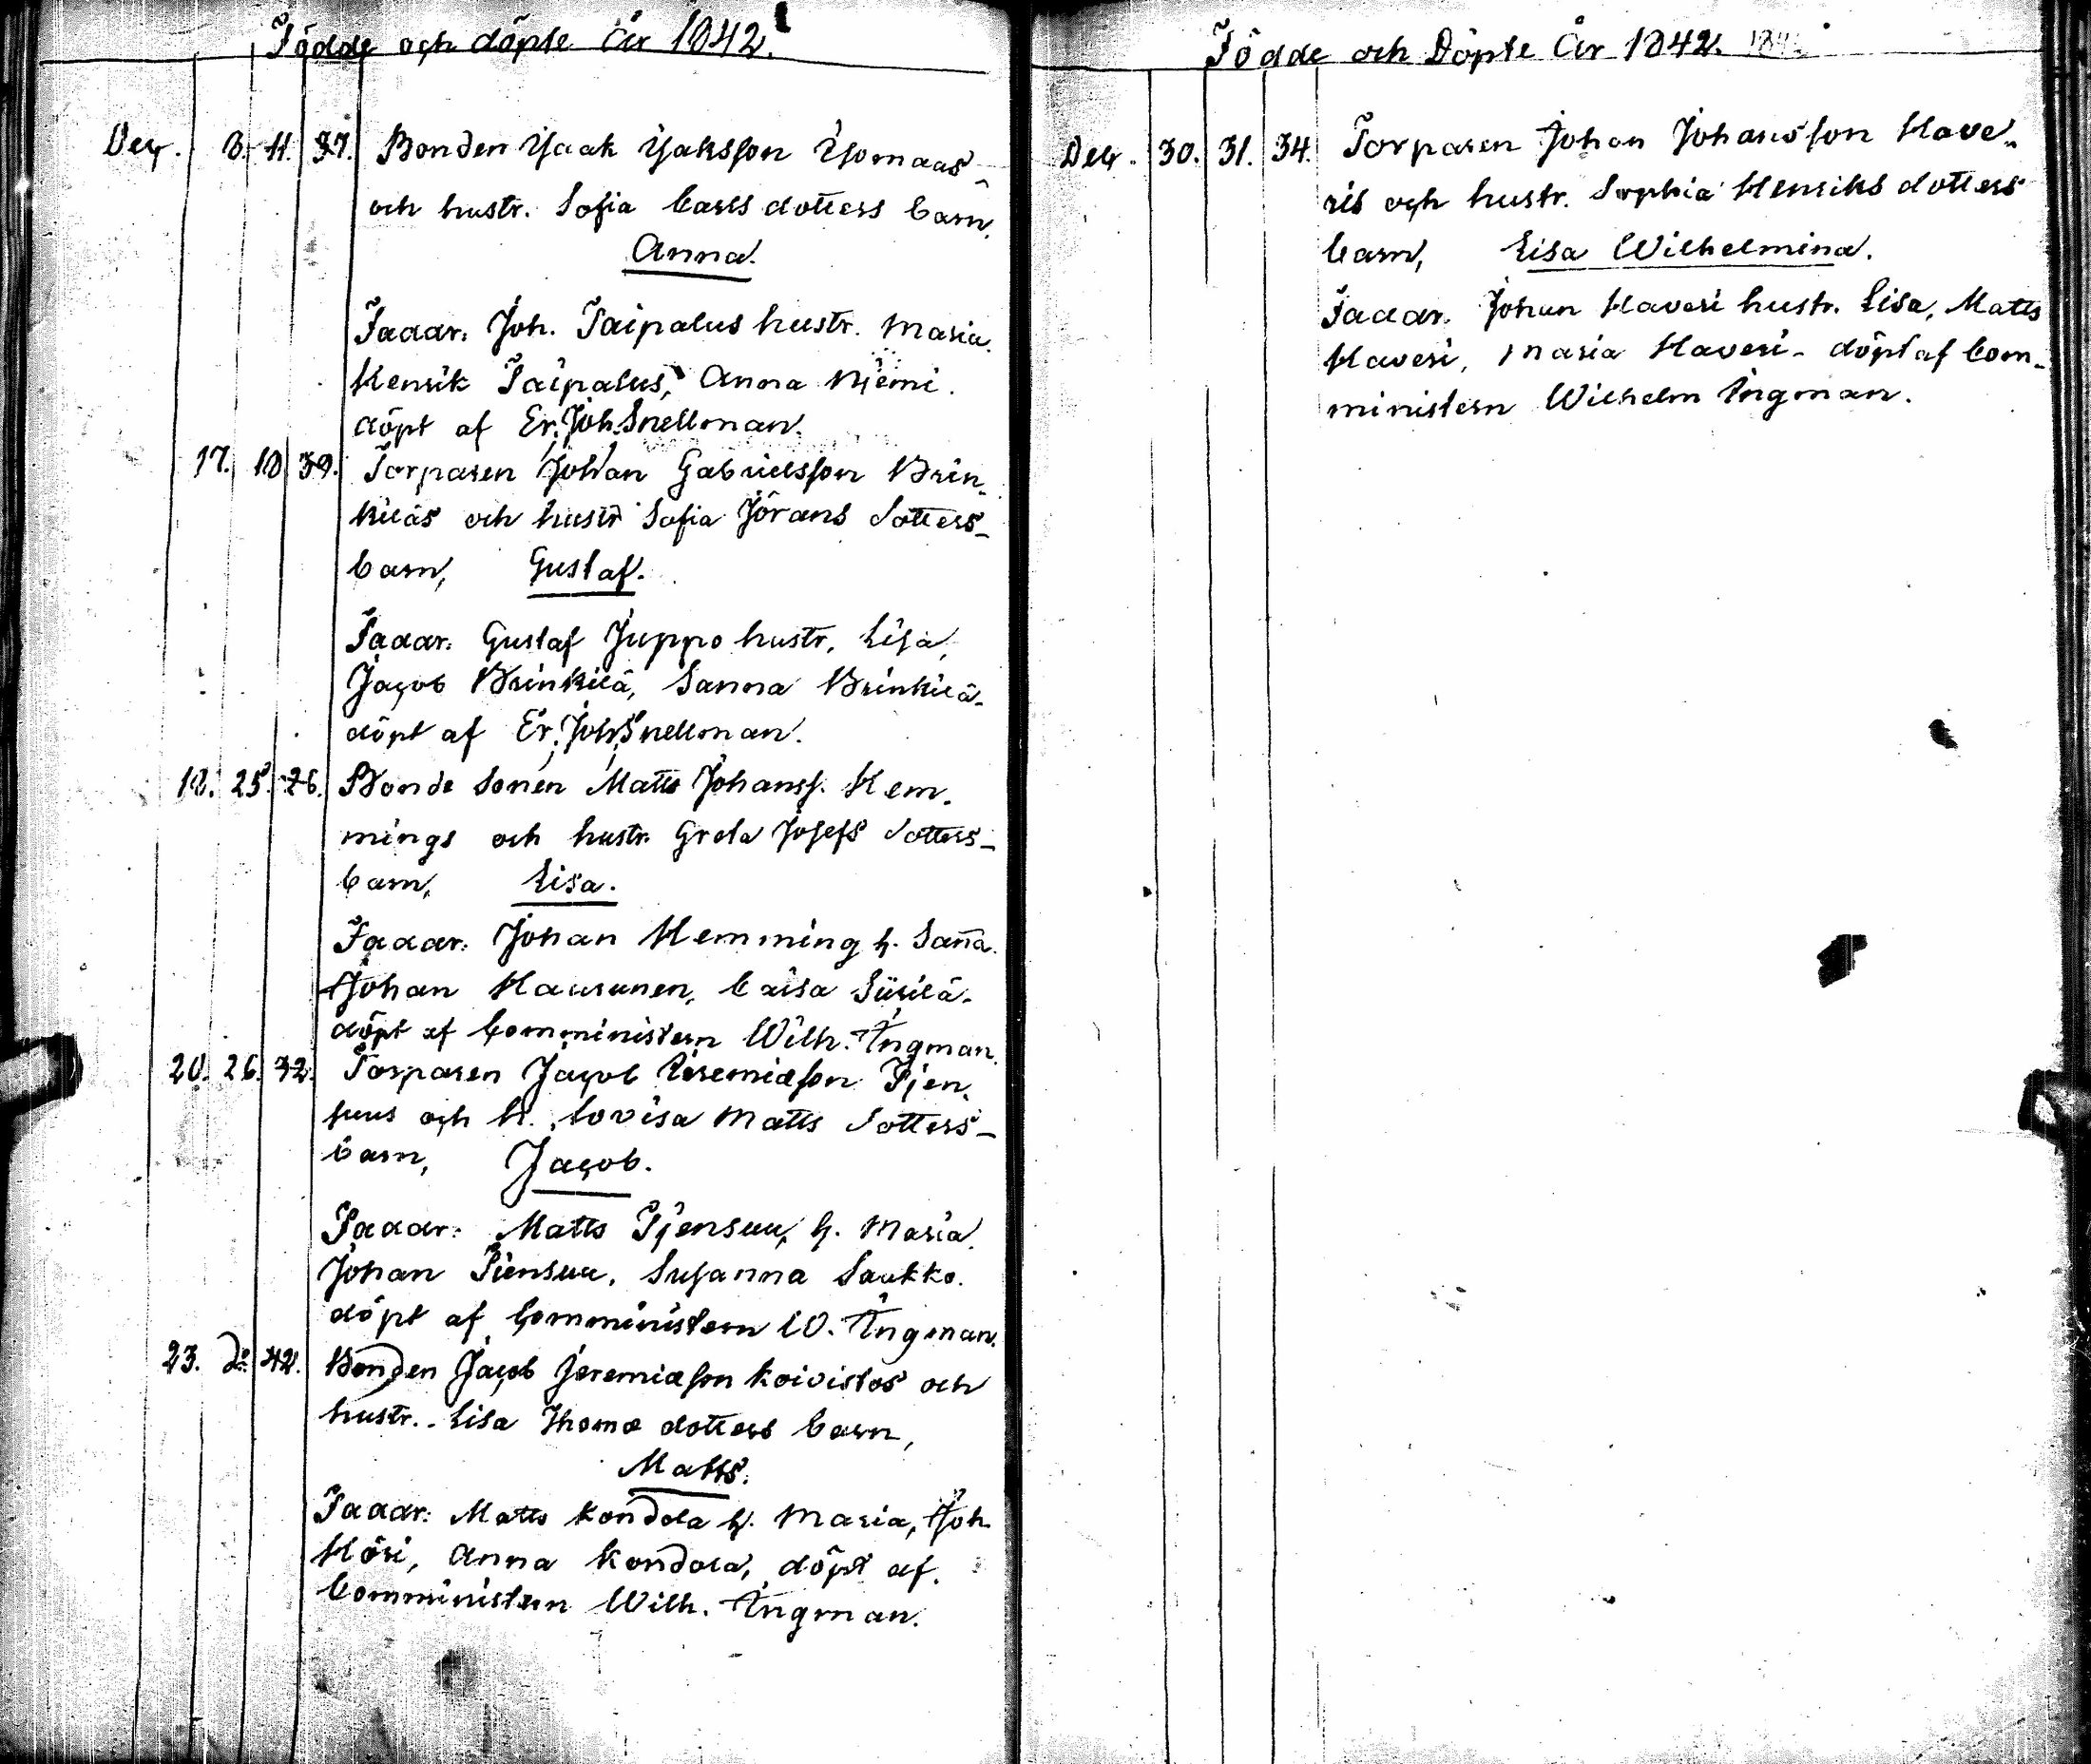 Födde och döpte År 1842.
Decr. 8. 11. 37. Bonden Isaak Isaksson Isomaas
och hustr. Sofia Carls dotters barn,
Anna.
Faddr. Joh. Taipalus hustr. Maria.
Henrik Taipalus, Anna Niemi.
döpt af Er. Joh. Snellman.
17. 18 39. Torparen Johan Gabrielsson Brin-
kiläs och hustr Sofia Jörans dotters
barn, Gustaf.
Faddr. Gustaf Juppo hustr. Lisa,
Jacob Brinkilä, Sanna Brinkilä.
döpt af Er. Joh. Snellman.
18. 25. 26. Bonde Sonen Matts Johanss. Hem-
mings och hustr. Greta Josefs dotters
barn, Lisa.
Faddr. Johan Hemming h. Sanna.
Johan Haurunen, Caisa
döpt af Comministern Wilh. Ingman.
20. 26. 32. Torparen Jacob Jeremiæson Tjen-
suus och h. Lovisa Matts dotters
barn, Jacob.
Faddr. Matts Tjensuu, h. Maria.
Johan Tiensuu, Susanna Saukko.
döpt af Comministern W. Ingman.
23. do 42. Bonden Jacob Jeremiæson Koivistos och
hustr. Lisa Thomæ dotters barn,
Matts.
Faddr. Matts Kondola h. Maria, Joh.
Anna Kondola, döpt af
Comministern Wilh. Ingman.
Födde och Döpte År 1842.
Decr. 30. 31. 34. Torparen Johan Johansson Have-
ris och hustr. Sophia Henriks dotters
barn, Lisa Wilhelmina.
Faddr. Johan Haveri hustr. Lisa, Matts
Haveri, Maria Haveri. döpt af Com-
ministern Wilhelm Ingman.